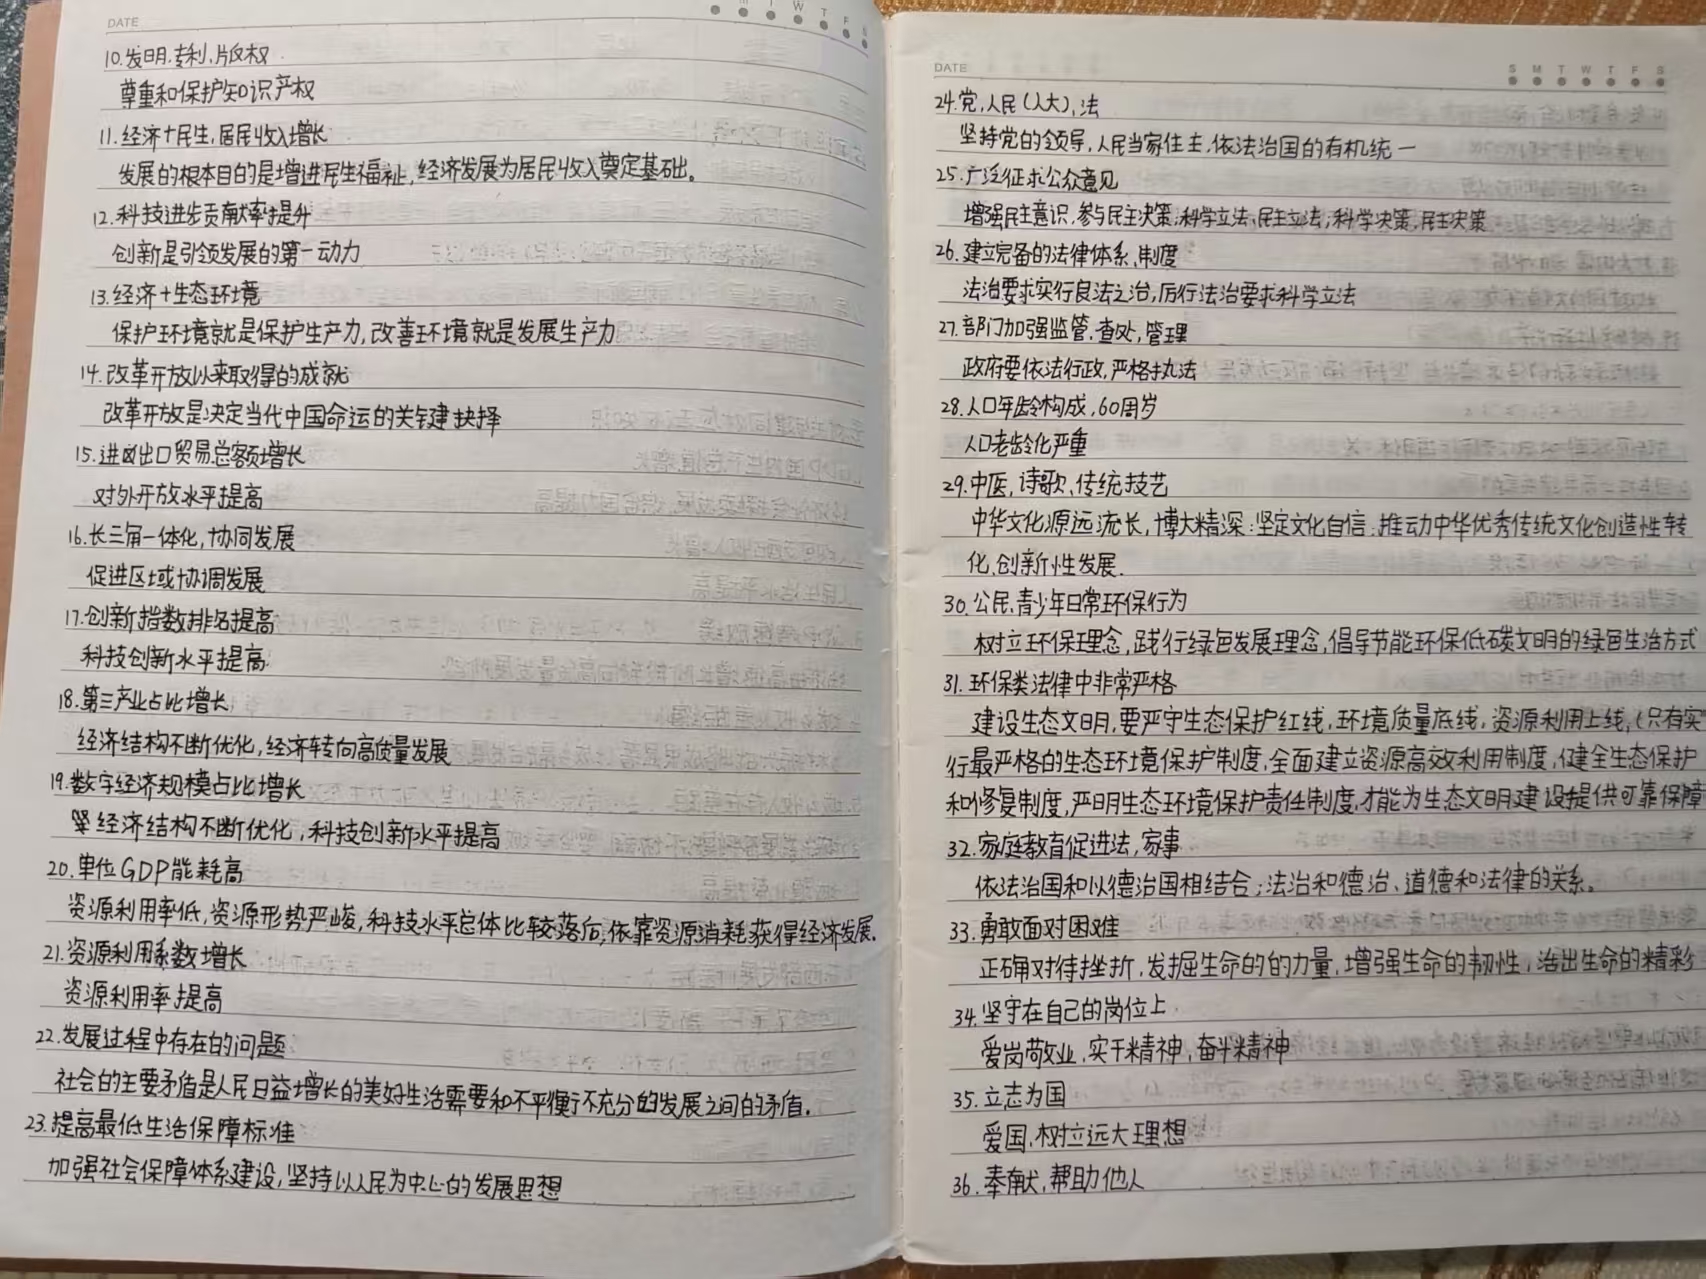 DATE
M T W T F S
10.发明,专利,版权
尊重和保护知识产权
11.经济+民生,居民收入增长
发展的根本目的是增进民生福祉,经济发展为居民收入奠定基础。
12.科技进步贡献率提升
创新是引领发展的第一动力
13.经济+生态环境
保护环境就是保护生产力,改善环境就是发展生产力
14.改革开放以来取得的成就
改革开放是决定当代中国命运的关键抉择
15.进出口贸易总额增长
对外开放水平提高
16.长三角一体化,协同发展
促进区域协调发展
17.创新指数排名提高
科技创新水平提高
18.第三产业占比增长
经济结构不断优化,经济转向高质量发展
19.数字经济规模占比增长
经济结构不断优化,科技创新水平提高
20.单位GDP能耗高
资源利用率低,资源形势严峻,科技水平总体比较落后,依靠资源消耗获得经济发展.
21.资源利用系数增长
资源利用率提高
22.发展过程中存在的问题
社会的主要矛盾是人民日益增长的美好生活需要和不平衡不充分的发展之间的矛盾.
23.提高最低生活保障标准
加强社会保障体系建设,坚持以人民为中心的发展思想
DATE
S M T W T F S
24.党,人民(人大),法
坚持党的领导,人民当家住主,依法治国的有机统一
25.广泛征求公众意见
增强民主意识,参与民主决策;科学立法,民主立法;科学决策,民主决策
26.建立完备的法律体系,制度
法治要求实行良法之治,厉行法治要求科学立法
27.部门加强监管,查处,管理
政府要依法行政,严格执法
28.人口年龄构成,60周岁
人口老龄化严重
29.中医,诗歌,传统技艺
中华文化源远流长,博大精深;坚定文化自信;推动中华优秀传统文化创造性转
化,创新性发展.
30.公民,青少年日常环保行为
树立环保理念,践行绿色发展理念,倡导节能环保低碳文明的绿色生活方式
31.环保类法律中非常严格
建设生态文明,要严守生态保护红线,环境质量底线,资源利用上线,(只有实
行最严格的生态环境保护制度,全面建立资源高效利用制度,健全生态保护
和修复制度,严明生态环境保护责任制度,才能为生态文明建设提供可靠保障
32.家庭教育促进法,家事
依法治国和以德治国相结合;法治和德治、道德和法律的关系。
33.勇敢面对困难
正确对待挫折,发掘生命的的力量,增强生命的韧性,活出生命的精彩
34.坚守在自己的岗位上
爱岗敬业,实干精神,奋斗精神
35.立志为国
爱国,树立远大理想
36.奉献,帮助他人